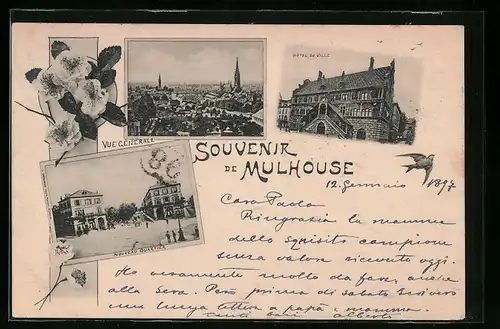 HÔTEL DE VILLE
VUE GÉNÉRALE
SOUVENIR
DE MULHOUSE
NOUVEAU QUARTIER
12. Gennaio 1897
Cara Paola
Ringrazia la mamma
dello squisito campione
senza valore ricevuto oggi.
Ho veramente molto da fare, anche
alla sera. Però prima di sabato scrivero
una lunga lettera a papà e mamma.
tanti baci Alberto